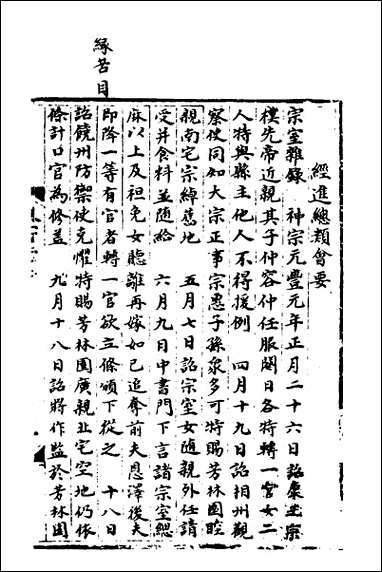 緣苦目
經進總類會要
宗室雜錄　神宗元豐元年正月二十六日詔秉王宗
樸先帝近親其子仲容仲任服闋日各特轉一官女二
人特與縣主他人不得援例　四月十九日詔相州觀
察使同知大宗正事宗惠子孫衆多可特賜芳林園睦
親南宅宗綽舊地　五月七日詔宗室女隨親外任請
受并食料並隨給　六月九日中書門下言諸宗室緦
麻以上及袒免女聽離再嫁如已追奪前夫恩澤後夫
即降一等有官者轉一官欲立條頒下從之　十八日
詔饒州防禦使克懼特賜芳林園廣親北宅空地仍依
條計口官為修蓋　九月十八日詔將作監於芳林園